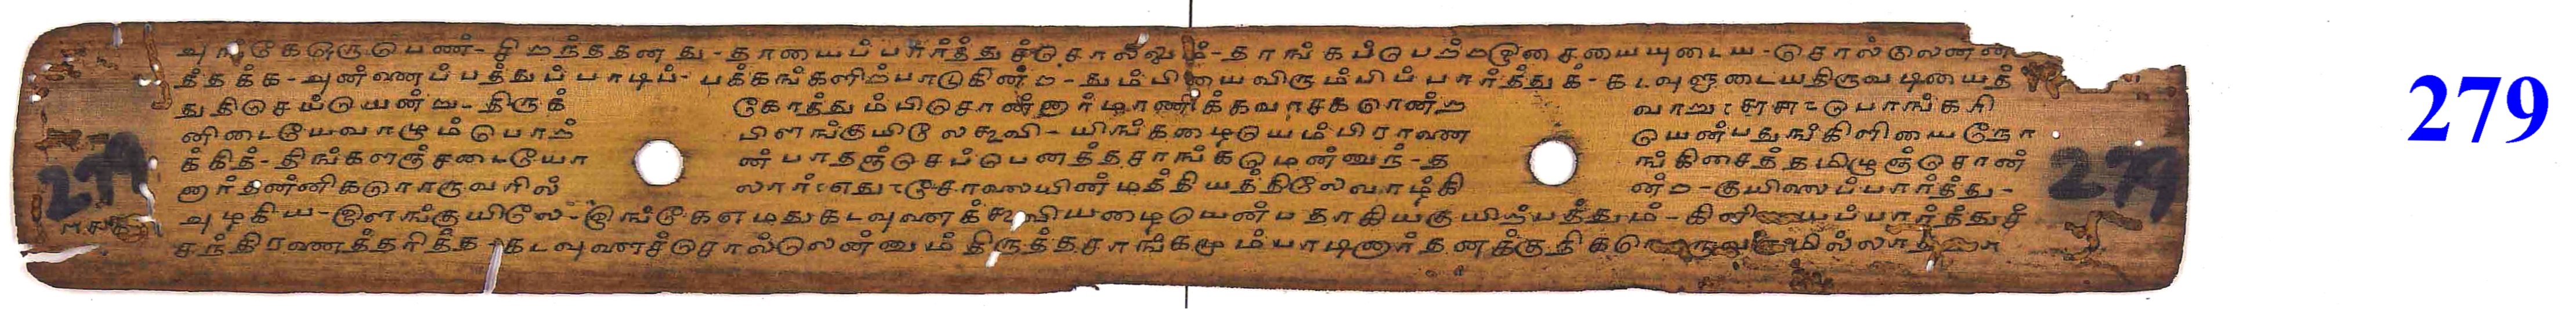 அங்கேஒருபெண் - சிறந்ததனது - தாயைப்பார்த்துச்சொல்லும் - தாங்கப்பெற்றஓசையையுடைய - சொல்லெண்ணி
த்தக்க - அன்னைப்பத்துப்பாடிப் - பக்கங்களிற்பாடுகின்ற - தும்பியைவிரும்பிப்பார்த்துக் - கடவுளுடையதிருவடியைத்
துதிசெய்யென்று - திருக் கோத்தும்பிசொன்னார்மாணிக்கவாசகரென்ற வாறு
னிடையேவாழும்பொற் பிளங்குயிலேகூவி - யிங்கழையெம்பிரானை யென்பதுங்கிளியைநோ
க்கித் - திங்களஞ்சடையோ ன்பாதஞ்செப்பெனத்தசாங்கமென்னுந் - த ங்கிசைத்தமிழுஞ்சொன்
னார்தன்னிகரொருவரில் லார் சோலையின்மத்தியத்திலேவாழ்கி ன்ற - குயிலைப்பார்த்து -
அழகிய - இளங்குயிலே - இங்கேஎமதுகடவுளைக்கூவியழையென்பதாகியகுயிற்பத்தும் - கிளியைப்பார்த்துச்
சந்திரனைத்தரித்த - கடவுளைச்சொல்லென்னும்திருத்தசாங்கமும்பாடினார்தனக்குநிகரொருவருமில்லாத
279
279
279